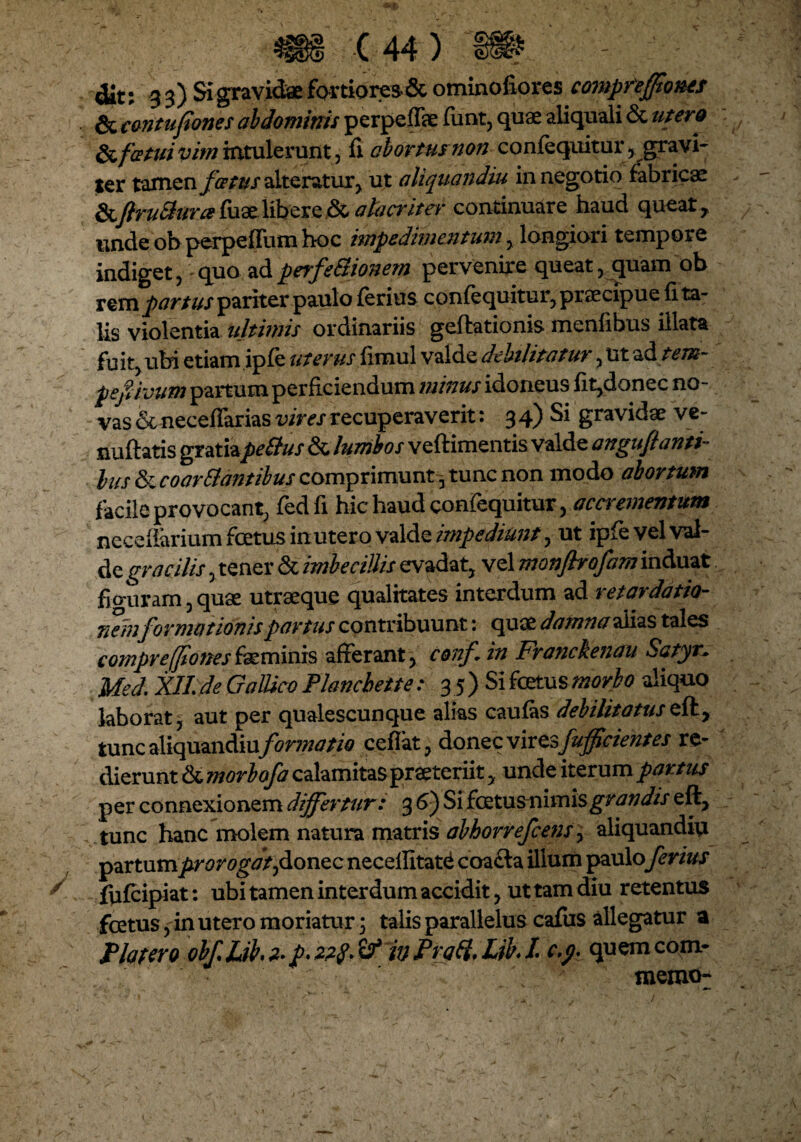 ( 44 )
dit: 33) Si gravidæ fortiores & ominoſiores compreſſiones
& contuſiones abdominis perpeſſæ ſunt, quæ aliquali & utero
& fœtui vim intulerunt, ſi abortus non conſequitur, gravi-
ter tamen fœtus alteratur, ut aliquandiu in negotio fabricæ
& ſtructuræ ſuæ libere & alacriter continuare haud queat,
unde ob perpeſſum hoc impedimentum, longiori tempore
indiget, quo ad perfectionem pervenire queat, quam ob
rem partus pariter paulo ſerius conſequitur, præcipue ſi ta-
lis violentia ultimis ordinariis geſtationis menſibus illata
fuit, ubi etiam ipſe uterus ſimul valde debilitatur, ut ad tem-
peſtivum partum perficiendum minus idoneus ſit, donec no-
vas & neceſſarias vires recuperaverit: 34) Si gravidæ ve-
nuſtatis gratia pectus & lumbos veſtimentis valde anguſtanti-
bus & coarctantibus comprimunt, tunc non modo abortum
facile provocant, ſed ſi hic haud conſequitur, accrementum
neceſſarium fœtus in utero valde impediunt, ut ipſe vel val-
de gracilis, tener & imbecillis evadat, vel monſtroſam induat
figuram, quæ utræque qualitates interdum ad retardatio-
nem formationis partus contribuunt: quæ damna alias tales
compreſſiones fæminis afferant, conf. in Franckenau Satyr.
Med. XII. de Gallico Planchette: 35) Si fœtus morbo aliquo
laborat, aut per qualescunque alias cauſas debilitatus eſt,
tunc aliquandiu formatio ceſſat, donec vires ſufficientes re-
dierunt & morboſa calamitas præteriit, unde iterum partus
per connexionem differtur: 36) Si fœtus nimis grandis eſt,
tunc hanc molem natura matris abhorreſcens, aliquandiu
partum prorogat, donec neceſſitate coacta illum paulo ſerius
ſuſcipiat: ubi tamen interdum accidit, ut tam diu retentus
fœtus, in utero moriatur; talis parallelus caſus allegatur a
Platero obſ. Lib. 2. p. 228. & in Pract. Lib. I. c. 9. quem com-
memo-